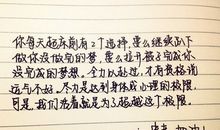 你每天起床都有2个选择，要么继续趴下
做你没做完的梦，要么拉开被子完成你
没完成的梦想。全力以赴过，才有资格说
运气不好。尽力是达到身体或心理的极限，
可是，我们活着就是为了超越这个极限。
加油！